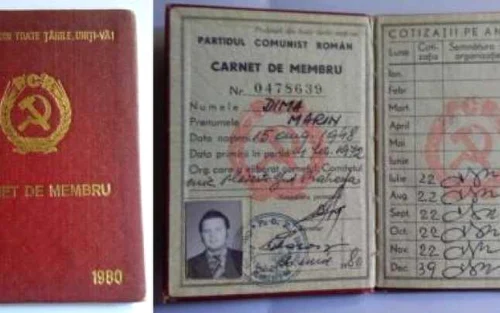 DIN TOATE ȚĂRILE, UNIȚI-VĂ!
PCR
NET DE MEMBRU
1980
Proletari din toate țările, uniți-vă!
PARTIDUL COMUNIST ROMÂN
CARNET DE MEMBRU
Nr. 0478639
Numele DIMA
Prenumele MARIN
Data nașterii 15 aug. 1948
Data primirii în partid 1972
Org. care a eliberat carnetul Comitetul
COTIZAȚII PE AN
Luna Coti-zația Semnătura organizației
Ian.
Febr
Mart.
April
Mai
Iunie
Iulie 22
Aug. 22
Sept. 22
Oct. 22
Nov. 22
Dec. 39